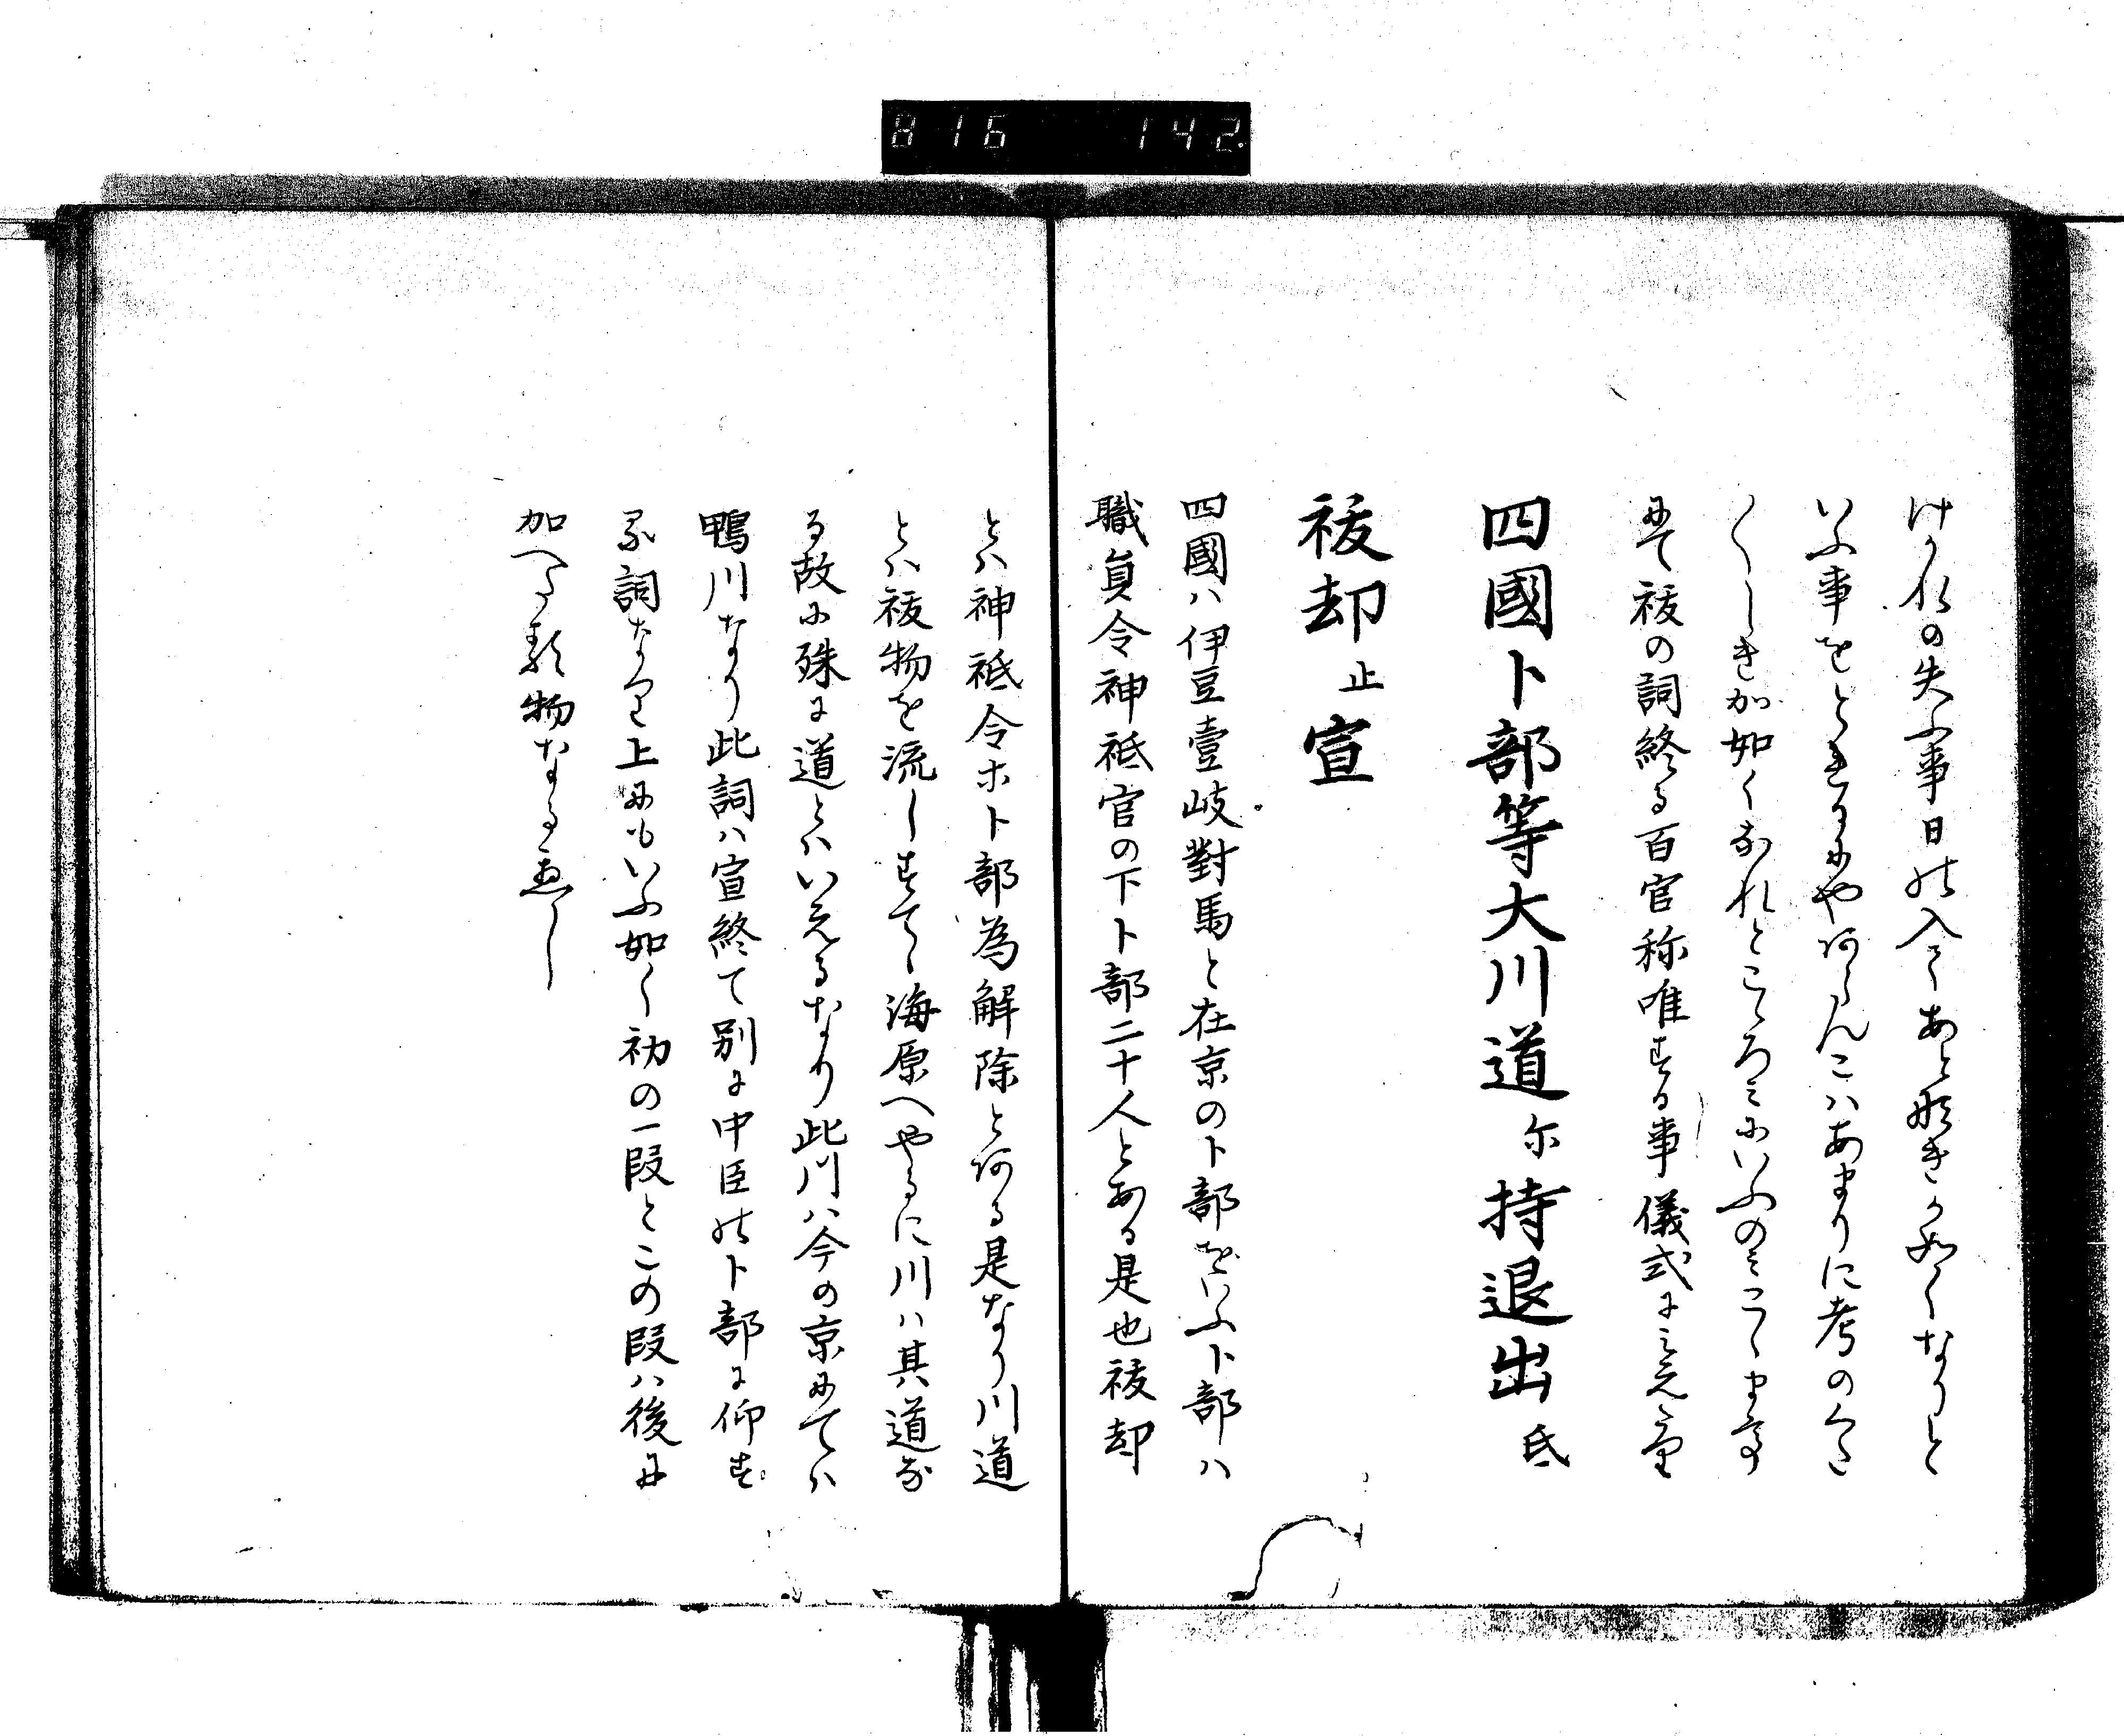 816 142
けかれの失ふ事日の入てあと形きか如くなりと
いふ事をときるにやあらんこはあまりに考のくた
くしき如くなれとこゝろみにいふのみこゝまて
にて祓の詞終る百官称唯する事儀式に見えたり
四國卜部等大川道尓持退出氐
祓却止宣
四國ハ伊豆壹岐對馬と在京の卜部をいふ卜部ハ
職員令神祇官の下卜部二十人とある是也祓却
とハ神祇令ホ卜部為解除とある是なり川道
とハ祓物を流しすてゝ海原へやるに川ハ其道な
る故に殊に道とハいえるなり此川ハ今の京にてハ
鴨川なり此詞ハ宣終て別に中臣の卜部に仰す
る詞なり上にもいふ如く初の一段とこの段ハ後に
加へたる物なるへし